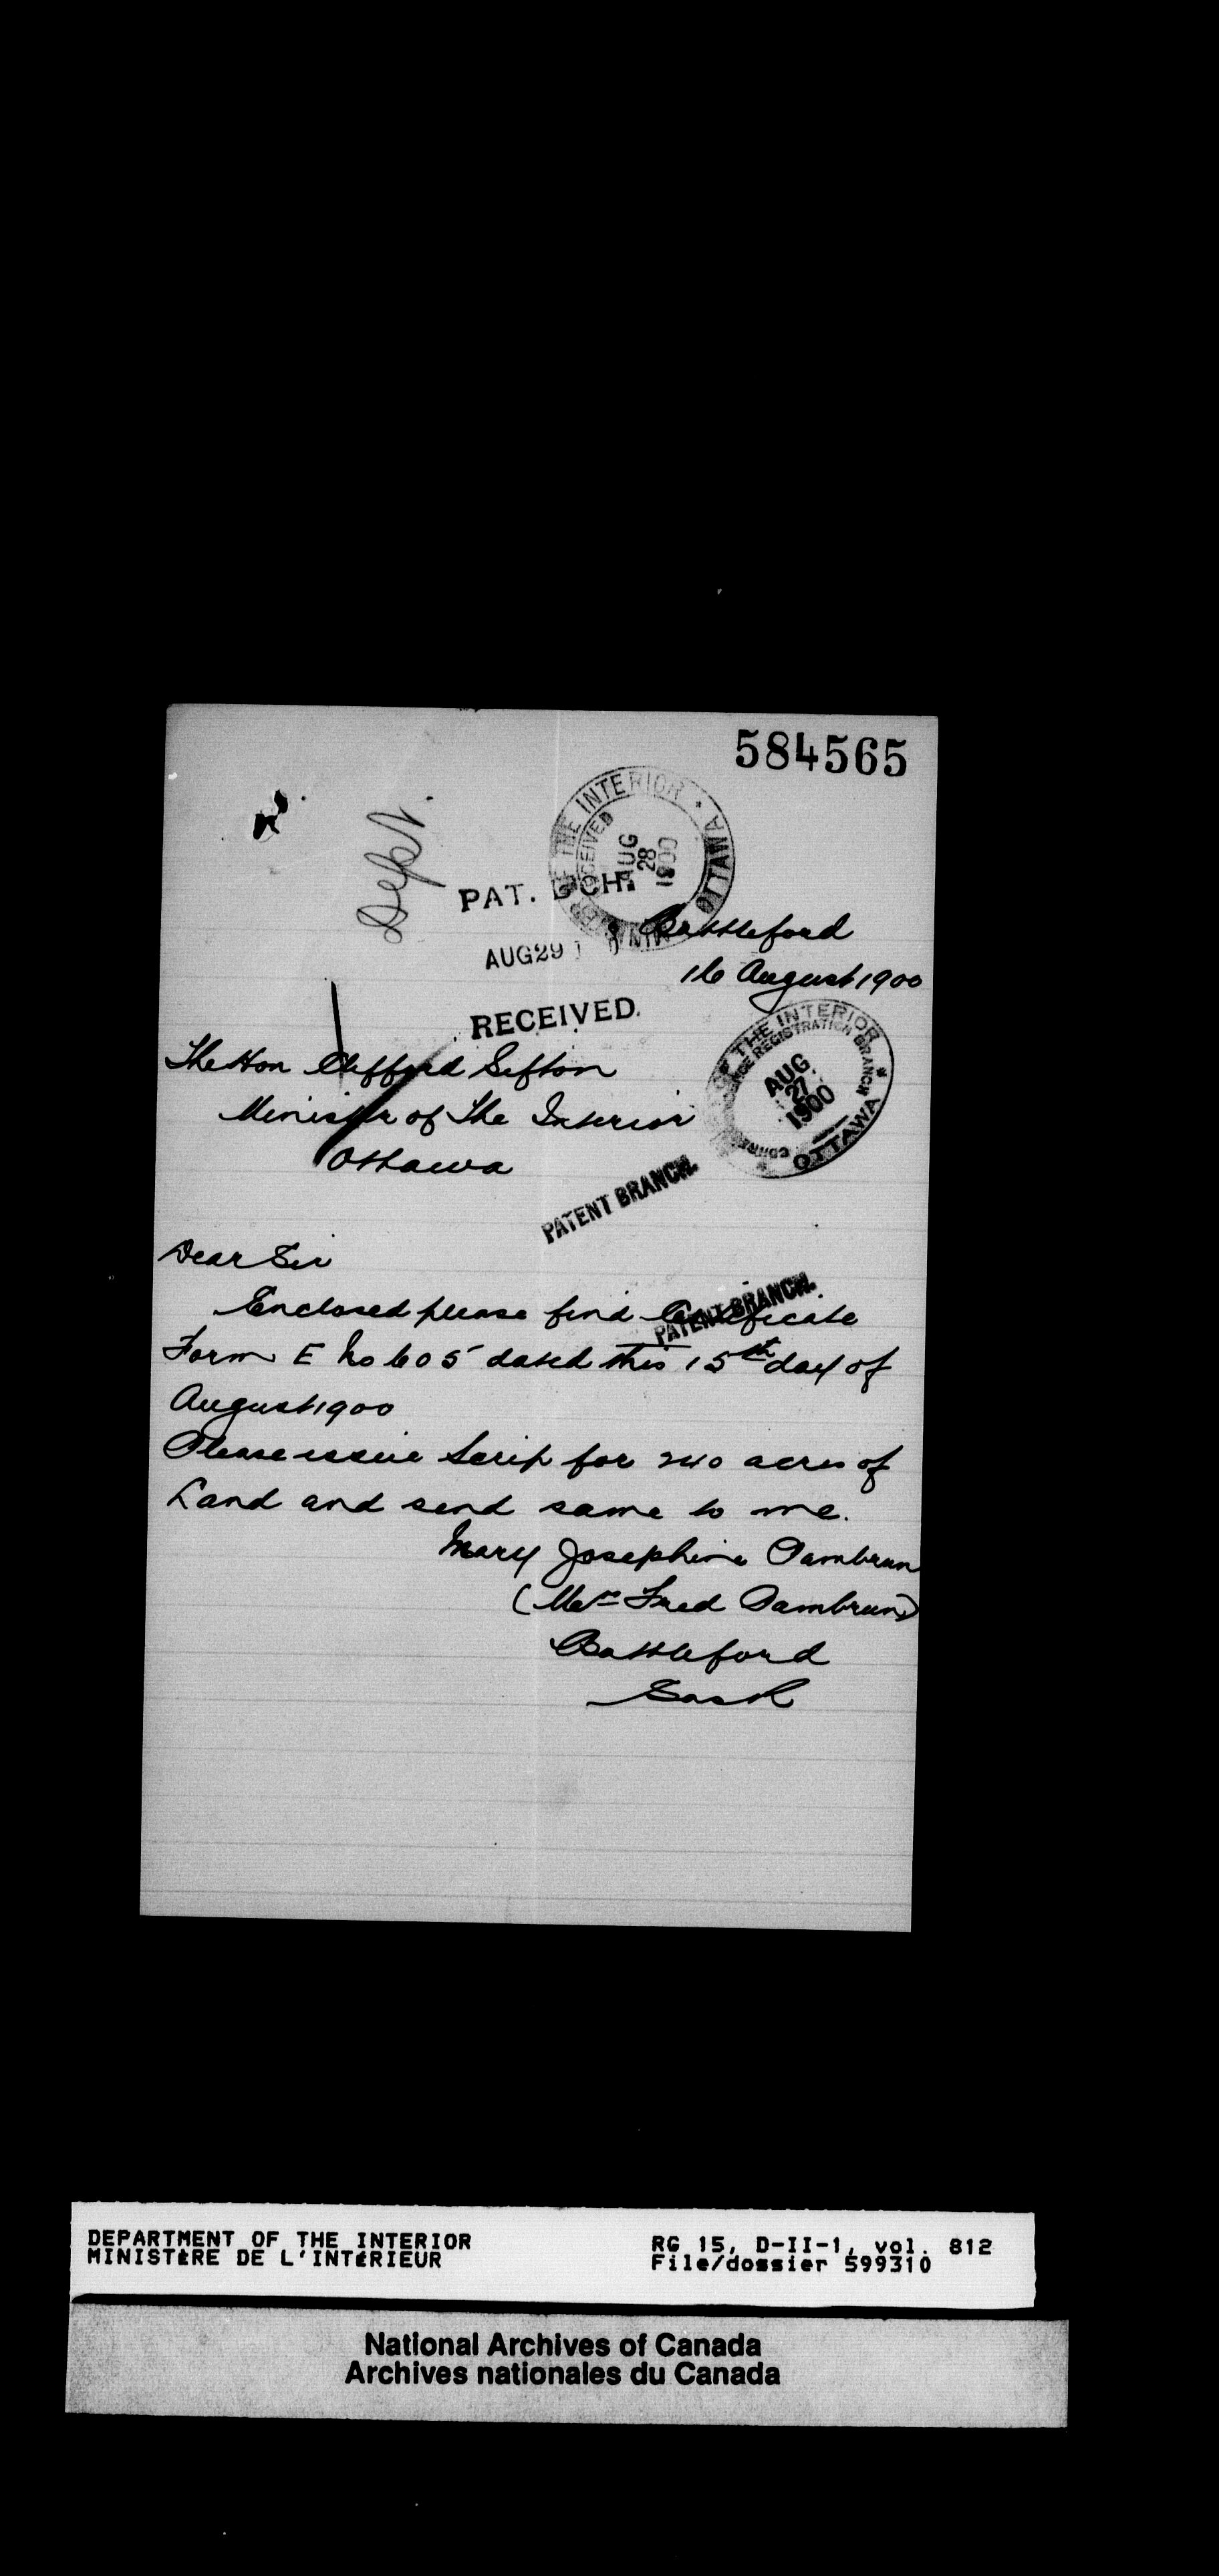 584565
Dept.
MINISTER OF THE INTERIOR * OTTAWA
RECEIVED
AUG
28
1900
PAT. BCH.
AUG 29 1
RECEIVED.
Battleford
16 August 1900
OF THE INTERIOR * OTTAWA *
REGISTRATION BRANCH
AUG
27
1900
The Hon Clifford Sifton
Minister of The Interior
Ottawa
PATENT BRANCH.
Dear Sir
PATENT BRANCH.
Enclosed please find Certificate
Form E No 605 dated this 15th day of
August 1900
Please issue Scrip for 240 acres of
Land and send same to me.
Mary Josephine Pambrun
(Mrs Fred Pambrun)
Battleford
Sask
DEPARTMENT OF THE INTERIOR
MINISTÈRE DE L'INTÉRIEUR
RG 15, D-II-1, vol. 812
File/dossier 599310
National Archives of Canada
Archives nationales du Canada